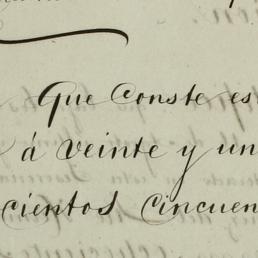 Que conste es
á veinte y un
cientos cincuen